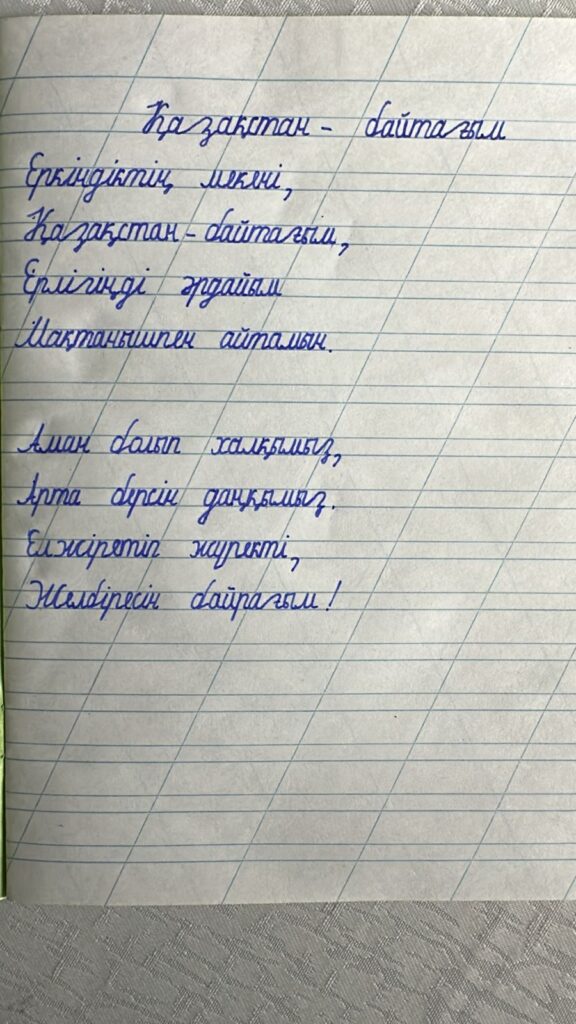 Қазақстан - байтағым
Еркіндіктің мекені,
Қазақстан - байтағым,
Ерлігіңді әрдайым
Мақтанышпен айтамын.
Аман болып халқымыз,
Арта берсін даңқымыз.
Елжіретіп жүректі,
Желбіресін байрағым!